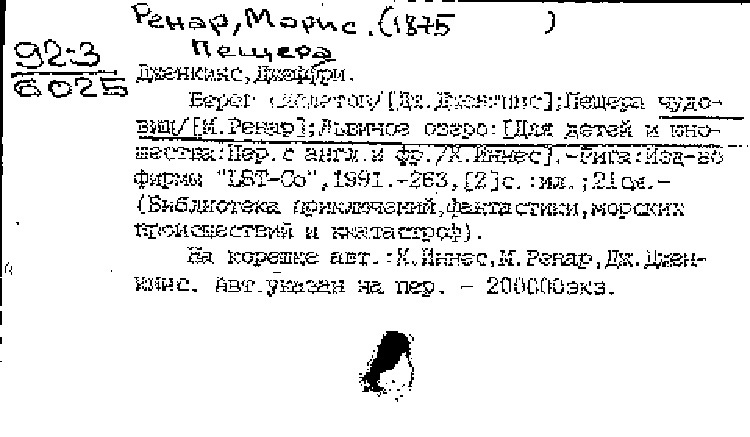 Ренар, Морис. (1875 )
Пещера
92-3
6025
Дженкинс, Джеффри.
Берег скелетов/[Дж.Дженкинс];Пещера чудо-
вищ/[М.Ренар];Львиное озеро:[Для детей и юно-
шества:Пер.с англ.и фр./Х.Иннес].-Рига:Изд-во
фирмы "LST-Co",1991.-263,[2]с.:ил.;21см.-
(Библиотека приключений,фантастики,морских
происшествий и ккатастроф).
На корешке авт.:Х.Иннес,М.Ренар,Дж.Джен-
кинс. Авт.указан на пер. - 200000экз.